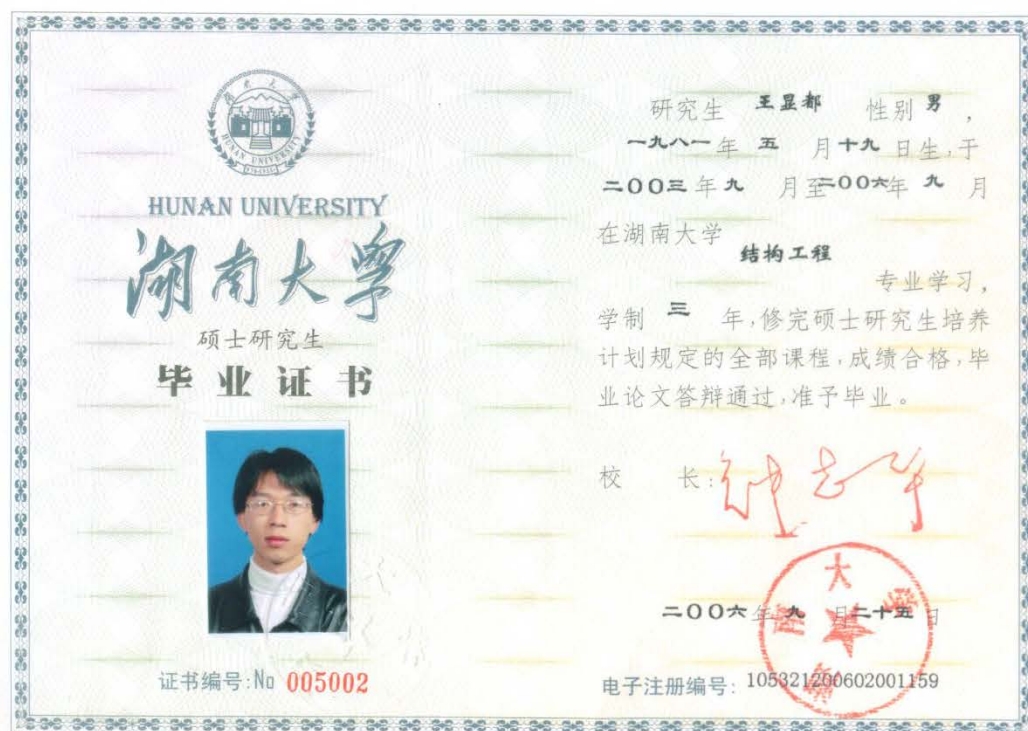 HUNAN UNIVERSITY
HUNAN UNIVERSITY
湖南大學
硕士研究生
毕业证书
证书编号:No 005002
研究生 王显都 性别 男,
一九八一 年 五 月 十九 日生,于
二00三 年 九 月至 二00六 年 九 月
在湖南大学
结构工程
专业学习,
学制 三 年,修完硕士研究生培养
计划规定的全部课程,成绩合格,毕
业论文答辩通过,准予毕业。
校 长:
二00六 年 九 月 二十五 日
电子注册编号: 105321200602001159